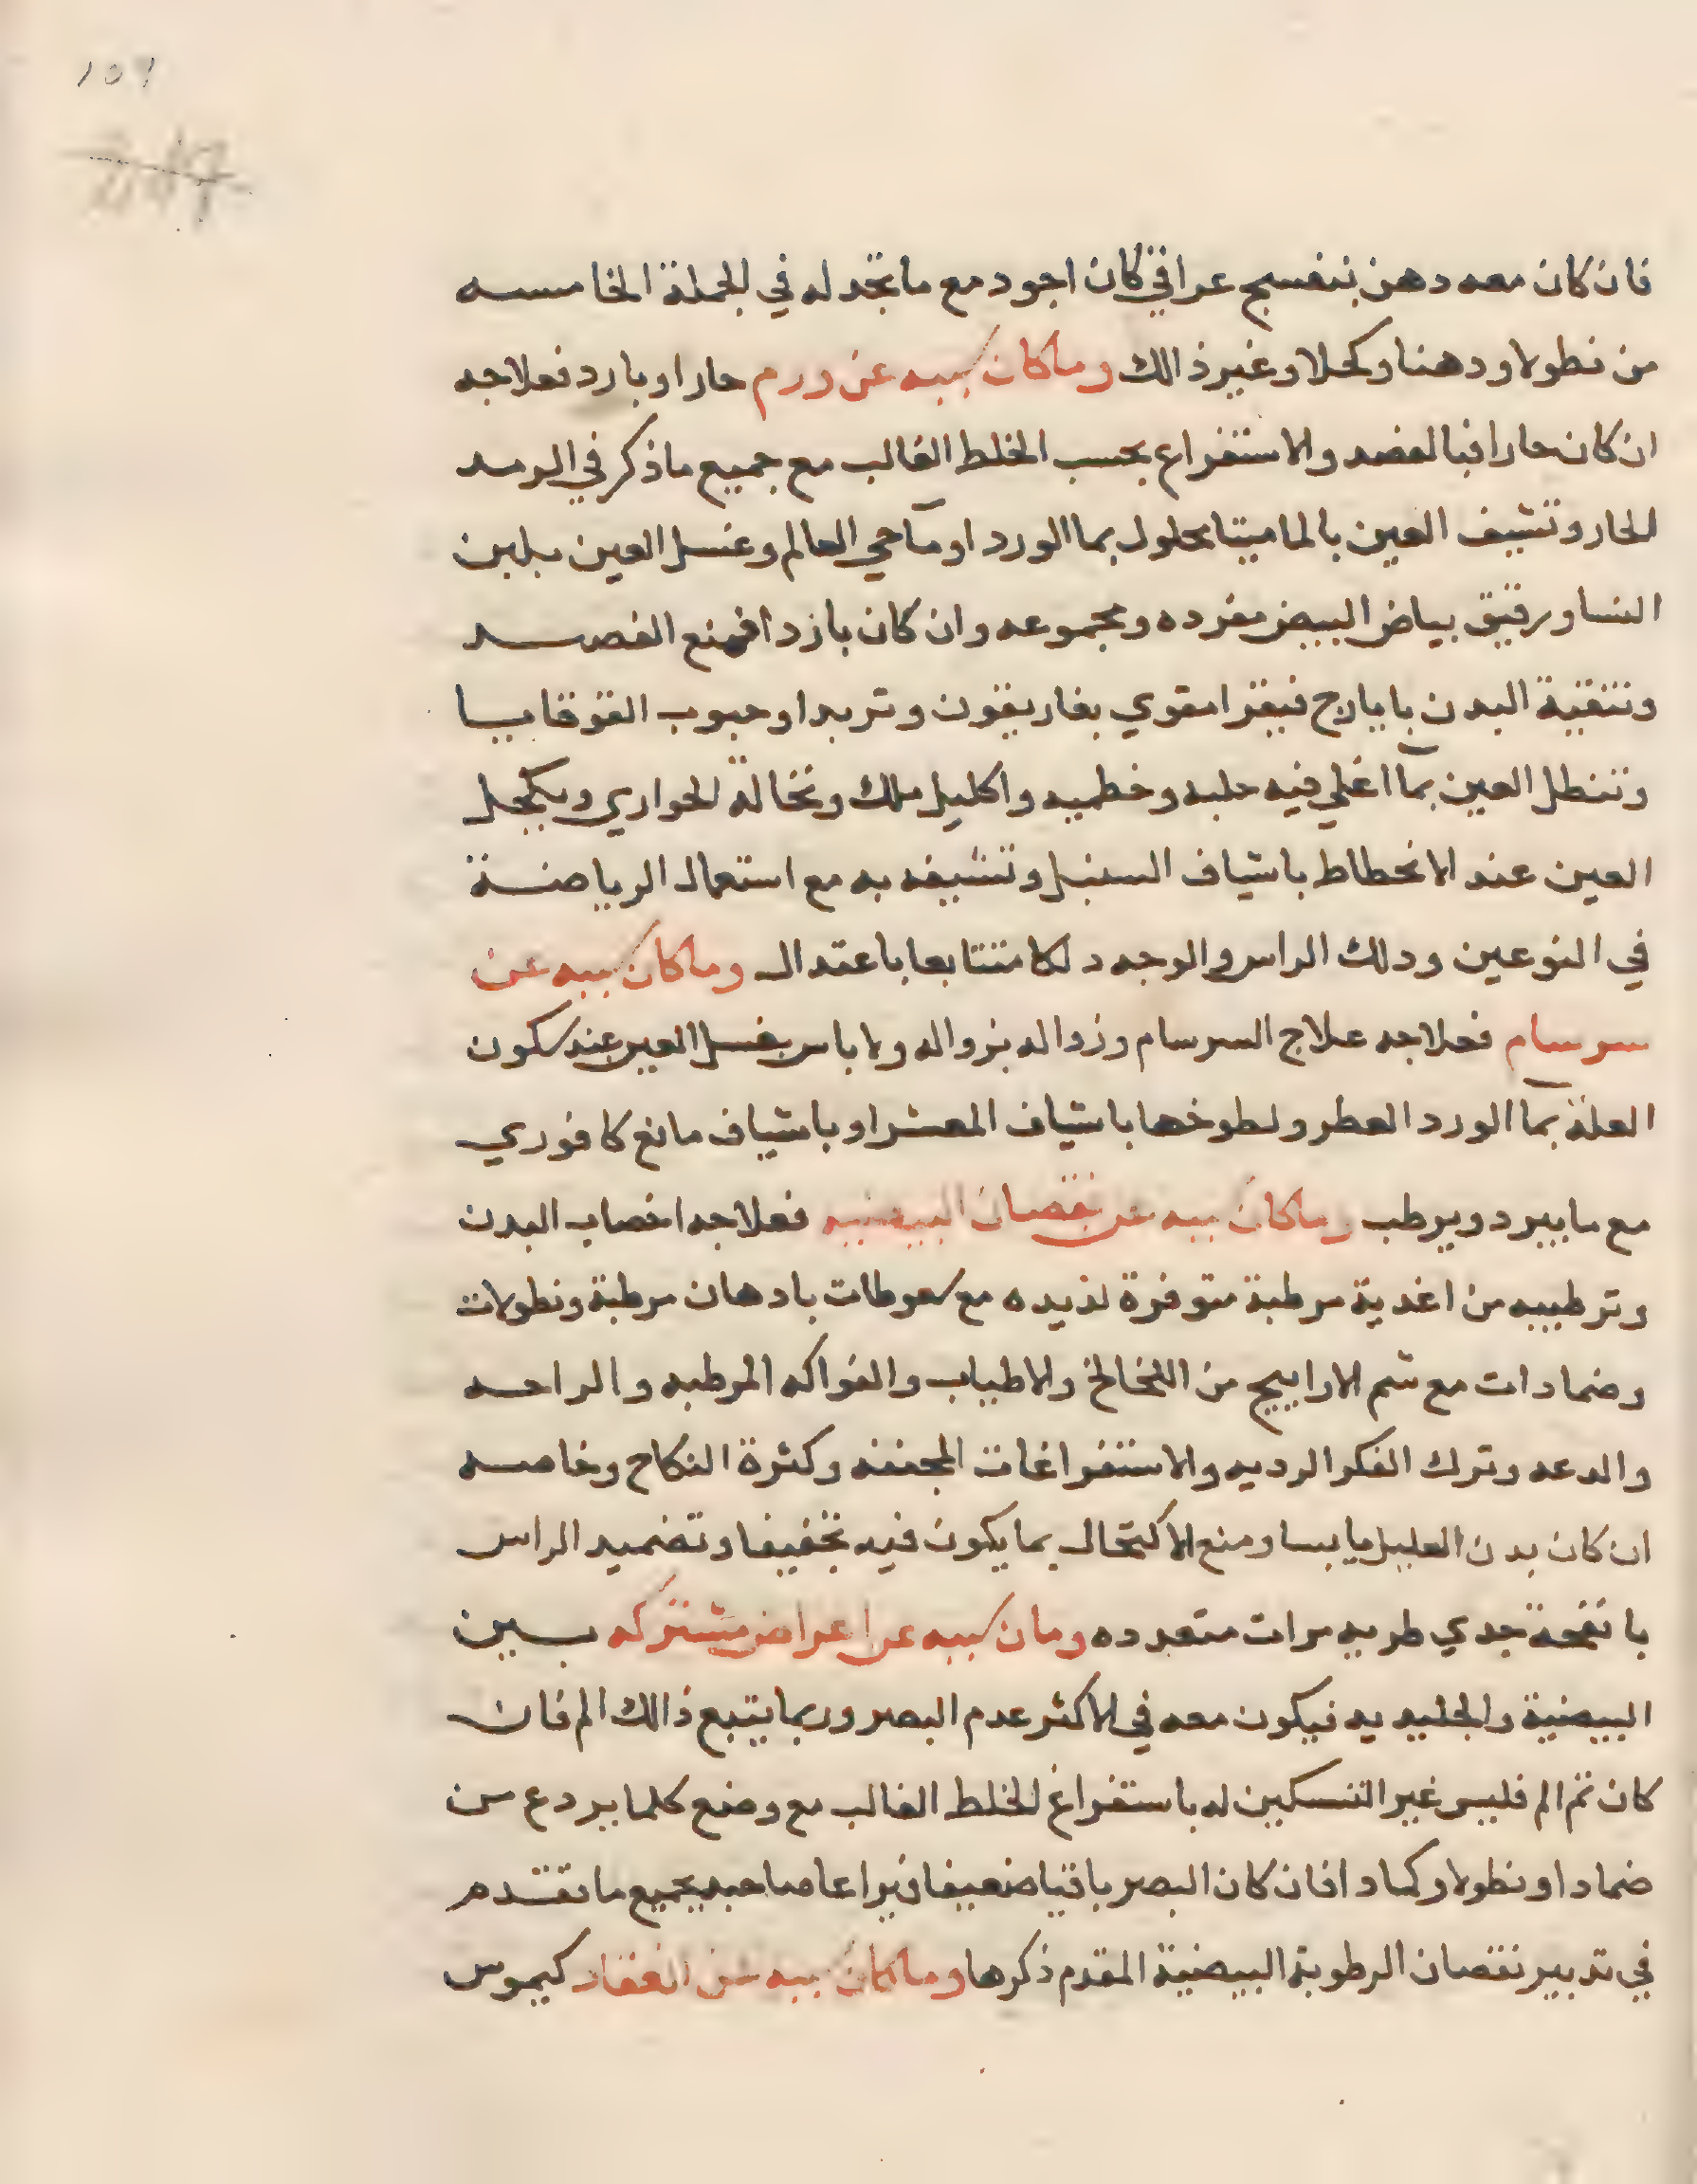 109
فان كان معه دهن بنفسج عراقي كان اجود مع ما تجد له في الجملة الخامسه
من نطولا ودهنا وكحلا وغير ذالك وما كان سببه عن ورم حار او بارد فعلاجه
ان كان حارا فبالفصد والاستفراغ بحسب الخلط الغالب مع جميع ما ذكر في الرمد
الحار وتشيف العين بالماميتا محلول بما الورد او مآ حي العالم وغسل العين بلبن
النسا ورقيق بياض البيض مفرده ومجموعه وان كان باردا فمنع الفصد
وتنقية البدن بايارج فيقرا مقوي بغاريقون وتربد او حبوب القوقايا
وتنطل العين بمآ اغلي فيه حلبه وخطميه واكليل ملك ونخالة الحواري ويكحل
العين عند الانحطاط باشياف السنبل وتشيفه به مع استعمال الرياضة
في النوعين ودلك الراس والوجه دلكا متتابعا باعتدال وما كان سببه عن
سرسام فعلاجه علاج السرسام وزواله بزواله ولا باس بغسل العين عند سكون
العلة بمآ الورد العطر ولطوخها باشياف المعشر او باشياف مانع كافوري
مع ما يبرد ويرطب وما كان سببه عن نقصان البيضيه فعلاجه اخصاب البدن
وترطيبه من اغدية مرطبة متوفرة لذيده مع سعوطات بادهان مرطبة ونطولات
وضمادات مع شم الاراييح من اللخالخ والاطياب والفواكه المرطبه والراحه
والدعه وترك الفكر الرديه والاستفراغات المجففه وكثرة النكاح وخاصه
ان كان بدن العليل يابسا ومنع الاكتحال بما يكون فيه تخفيفا وتضميد الراس
بانفحة جدي طريه مرات متعدده ومان سببه عن اعراض مشتركه بين
البيضية والجليديه فيكون معه في الاكثر عدم البصر وربما يتبع ذالك الم فان
كان ثم الم فليس غير التسكين له باستفراغ الخلط الغالب مع وضع كلما يردع من
ضمادا ونطولا وكمادا فان كان البصر باقيا ضعيفا فيراعا صاحبه بجميع ما تقدم
في تدبير نقصان الرطوبة البيضية المقدم ذكرها وما كان سببه عن انعقاد كيموس